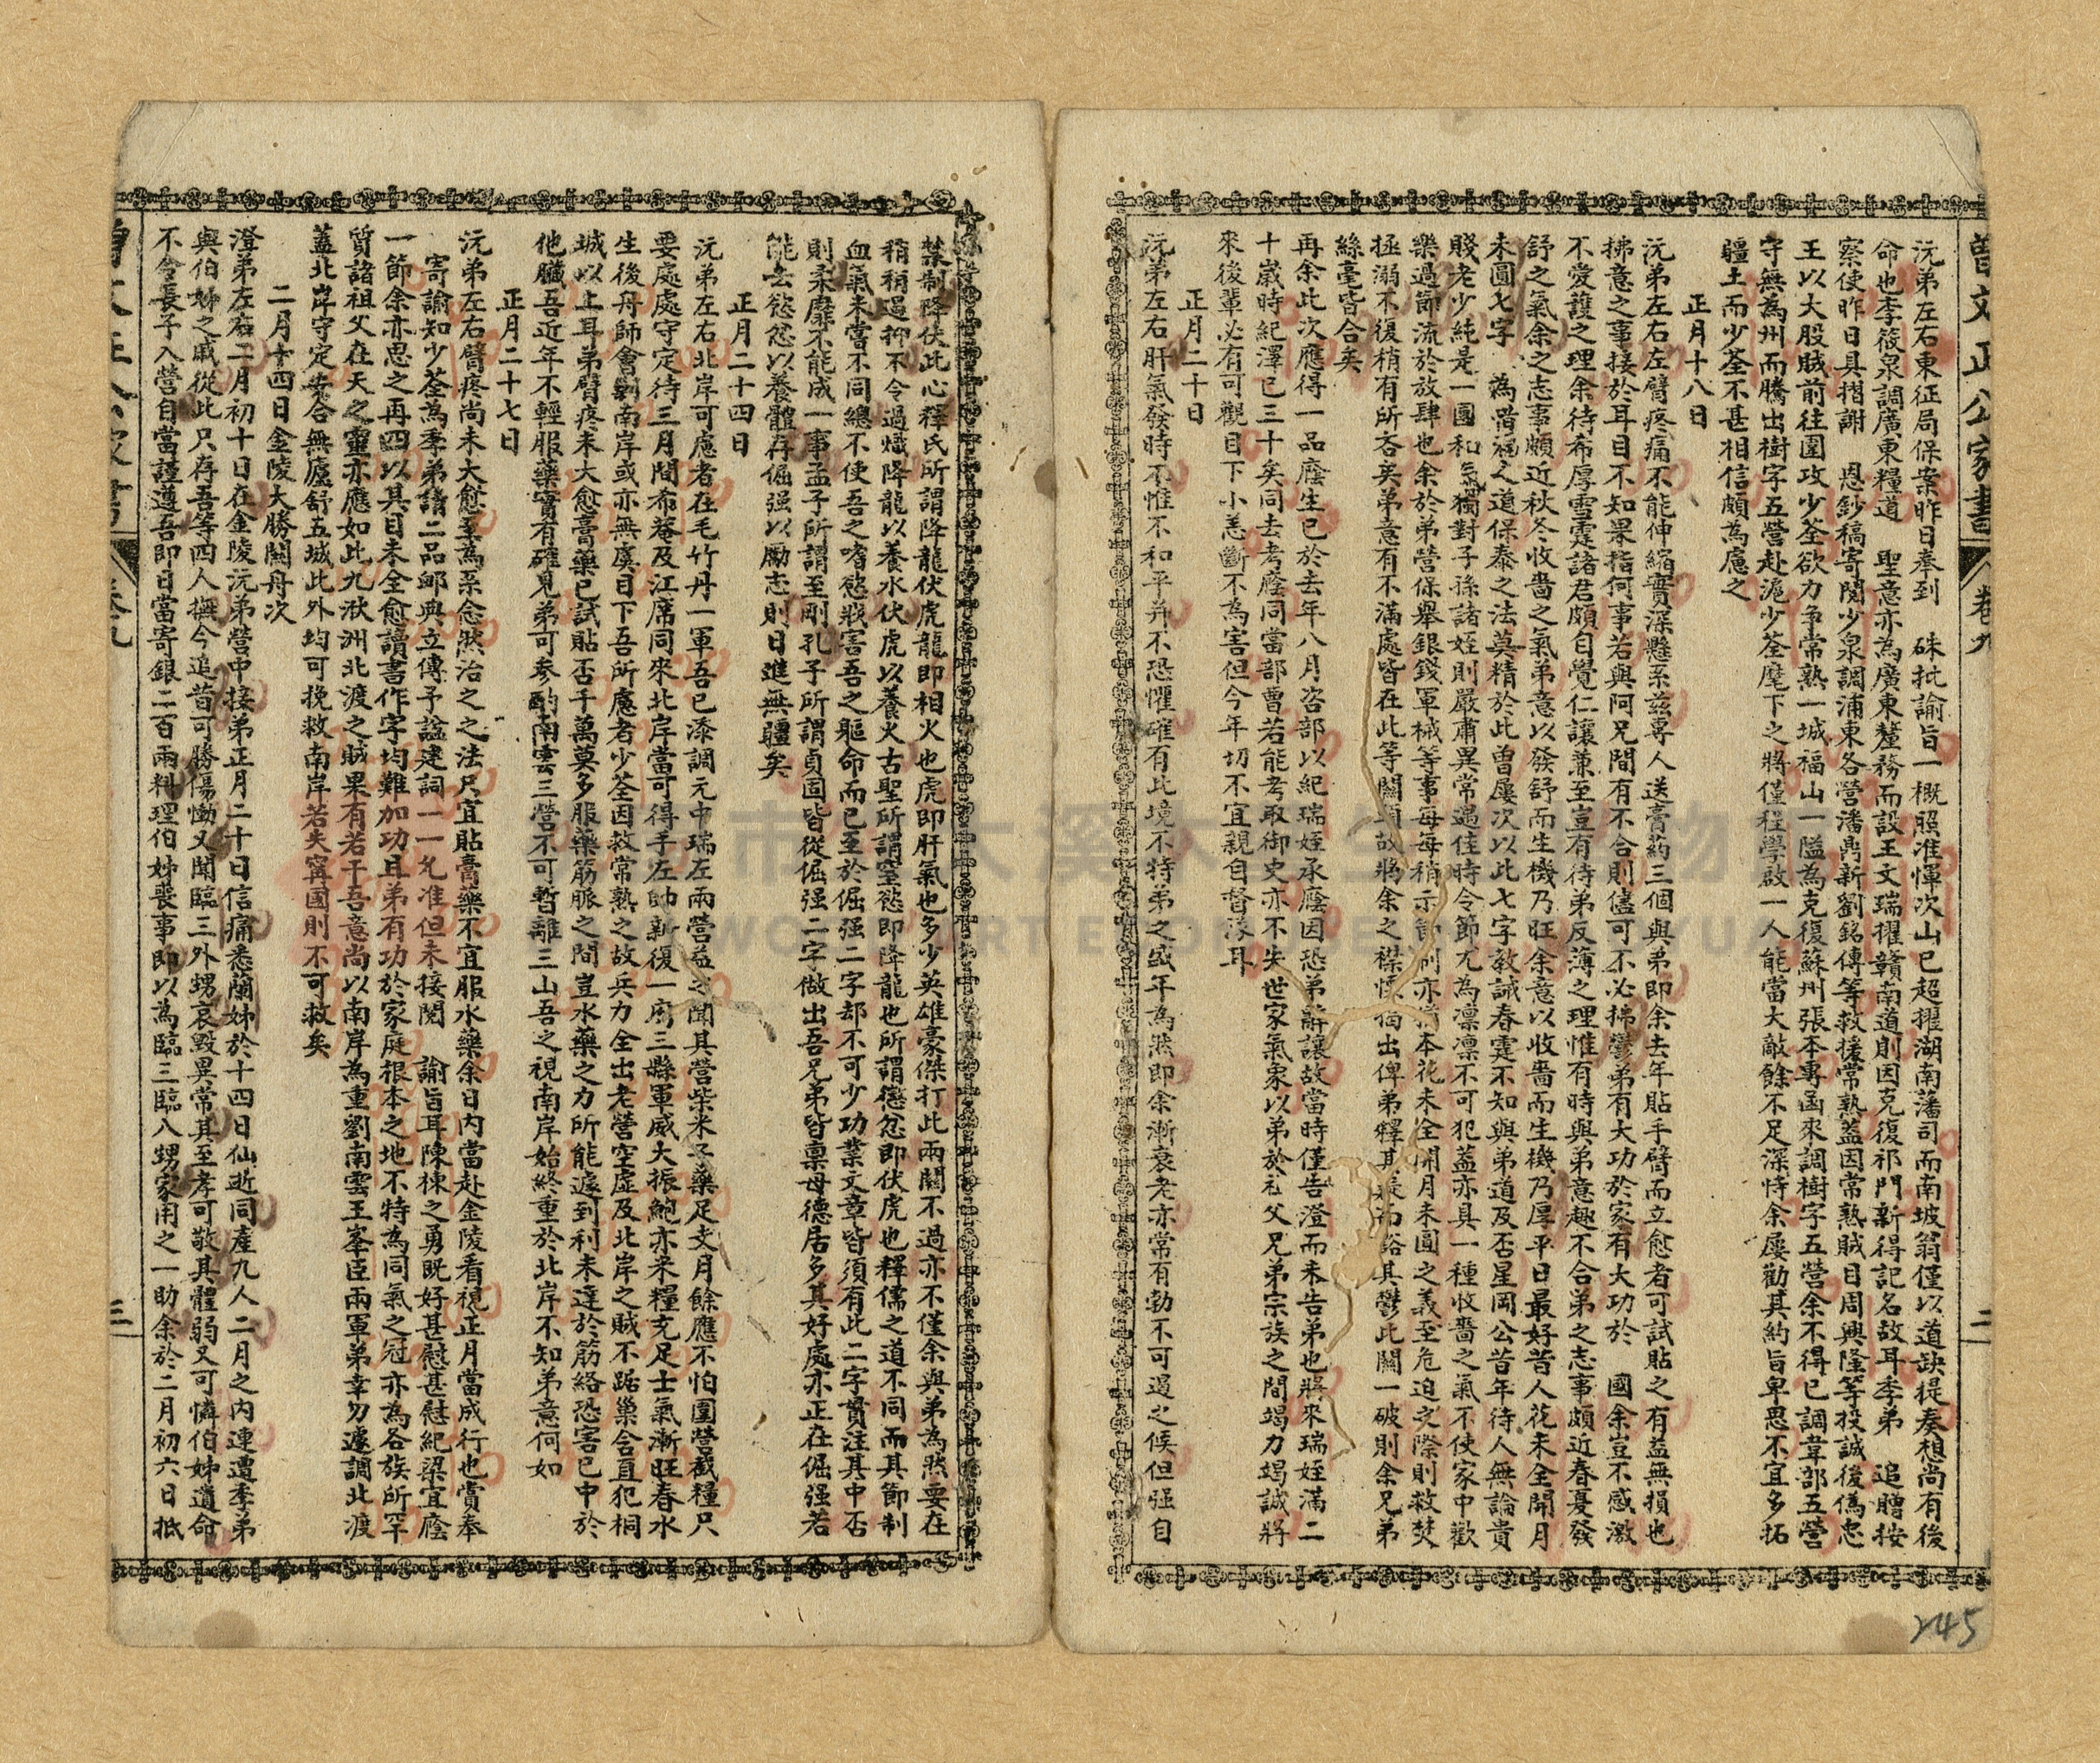 曾文正公家書
卷九
二
沅弟左右東征局保案昨日奉到　硃批諭旨一概照准惲次山已超擢湖南藩司而南坡翁僅以道缺提奏想尚有後
命也李筱泉調廣東糧道　聖意亦為廣東釐務而設王文瑞擢贛南道則因克復祁門新得記名故耳季弟　追贈按
察使昨日具摺謝　恩鈔稿寄閱少泉調浦東各營潘鼎新劉銘傳等救援常熟蓋因常熟賊目周興隆等投誠後偽忠
王以大股賊前往圍攻少荃欲力争常熟一城福山一隘為克復蘇州張本專函來調樹字五營余不得已調韋部五營
守無為州而騰出樹字五營赴滬少荃麾下之將僅程學啟一人能當大敵餘不足深恃余屢勸其約旨卑思不宜多拓
疆土而少荃不甚相信頗為慮之
正月十八日
沅弟左右左臂疼痛不能伸縮實深懸系茲專人送膏葯三個與弟即余去年貼手臂而立愈者可試貼之有益無損也
拂意之事接於耳目不知果指何事若與阿兄間有不合則儘可不必拂鬱弟有大功於家有大功於　國余豈不感激
不愛護之理余待希厚雪霆諸君頗自覺仁讓兼至豈有待弟反薄之理惟有時與弟意趣不合弟之志事頗近春夏發
舒之氣余之志事頗近秋冬收嗇之氣弟意以發舒而生機乃旺余意以收嗇而生機乃厚平日最好昔人花未全開月
未圓七字　為惜福之道保泰之法莫精於此曾屢次以此七字教誡春霆不知與弟道及否星岡公昔年待人無論貴
賤老少純是一團和氣獨對子孫諸姪則嚴肅異常遇佳時令節尤為凜凜不可犯蓋亦具一種收嗇之氣不使家中歡
樂過節流於放肆也余於弟營保舉銀錢軍械等事每每稍示節制亦猶本花未全開月未圓之義至危迫之際則救焚
拯溺不復稍有所吝矣弟意有不滿處皆在此等關頭故將余之襟懷揭出俾弟釋其疑而豁其鬱此關一破則余兄弟
絲毫皆合矣
再余此次應得一品廕生已於去年八月咨部以紀瑞姪承廕因恐弟辭讓故當時僅告澄而未告弟也將來瑞姪滿二
十歲時紀澤已三十矣同去考廕同當部曹若能考取御史亦不失世家氣象以弟於祖父兄弟宗族之間竭力竭誠將
來後輩必有可觀目下小恙斷不為害但今年切不宜親自督隊耳
正月二十日
沅弟左右肝氣發時不惟不和平并不恐懼確有此境不特弟之盛年為然即余漸衰老亦常有勃不可遏之候但强自
禁制降伏此心釋氏所謂降龍伏虎龍即相火也虎即肝氣也多少英雄豪傑打此兩關不過亦不僅余與弟為然要在
稍稍遏抑不令過熾降龍以養水伏虎以養火古聖所謂窒慾即降龍也所謂懲忿即伏虎也釋儒之道不同而其節制
血氣未嘗不同總不使吾之嗜慾戕害吾之軀命而已至於倔强二字却不可少功業文章皆須有此二字貫注其中否
則柔靡不能成一事孟子所謂至剛孔子所謂貞固皆從倔强二字做出吾兄弟皆禀母德居多其好處亦正在倔强若
能去慾忿以養體存倔强以勵志則日進無疆矣
正月二十四日
沅弟左右北岸可慮者在毛竹丹一軍吾已添調元中瑞左兩營益之聞其營柴米子藥足支月餘應不怕圍營截糧只
要處處守定待三月間希菴及江席同來北岸當可得手左帥新復一府三縣軍威大振鮑亦米糧充足士氣漸旺春水
生後舟師會剿南岸或亦無虞目下吾所慮者少荃因救常熟之故兵力全出老營空虛及北岸之賊不踞巢含直犯桐
城以上耳弟臂疼未大愈膏藥已試貼否千萬莫多服藥筋脈之間豈水藥之力所能遽到利未達於筋絡恐害已中於
他臟吾近年不輕服藥實有確見弟可参酌南雲三營不可暫離三山吾之視南岸始終重於北岸不知弟意何如
正月二十七日
沅弟左右臂疼尚未大愈至為系念然治之之法只宜貼膏藥不宜服水藥余日內當赴金陵看視正月當成行也賞奉
寄諭知少荃為季弟請二品卹典立傳予諡建詞一一允准但未接閱　諭旨耳陳棟之勇既好甚慰甚慰紀梁宜廕
一節余亦思之再四以其目未全愈讀書作字均難加功且弟有功於家庭根本之地不特為同氣之冠亦為各族所罕
質諸祖父在天之靈亦應如此九洑洲北渡之賊果有若干吾意尚以南岸為重劉南雲王峯臣兩軍弟幸勿遽調北渡
蓋北岸守定安合無廬舒五城此外均可挽救南岸若失寗國則不可救矣
二月十四日金陵大勝關舟次
澄弟左右二月初十日在金陵沅弟營中接弟正月二十日信痛悉蘭姊於十四日仙逝同產九人二月之内連遭季弟
與伯姊之戚從此只存吾等四人撫今追昔可勝傷慟又聞臨三外甥哀毀異常其至孝可敬其體弱又可憐伯姊遺命
不令長子入營自當謹遵吾即日當寄銀二百兩料理伯姊喪事即以為臨三臨八甥家用之一助余於二月初六日抵
三
245